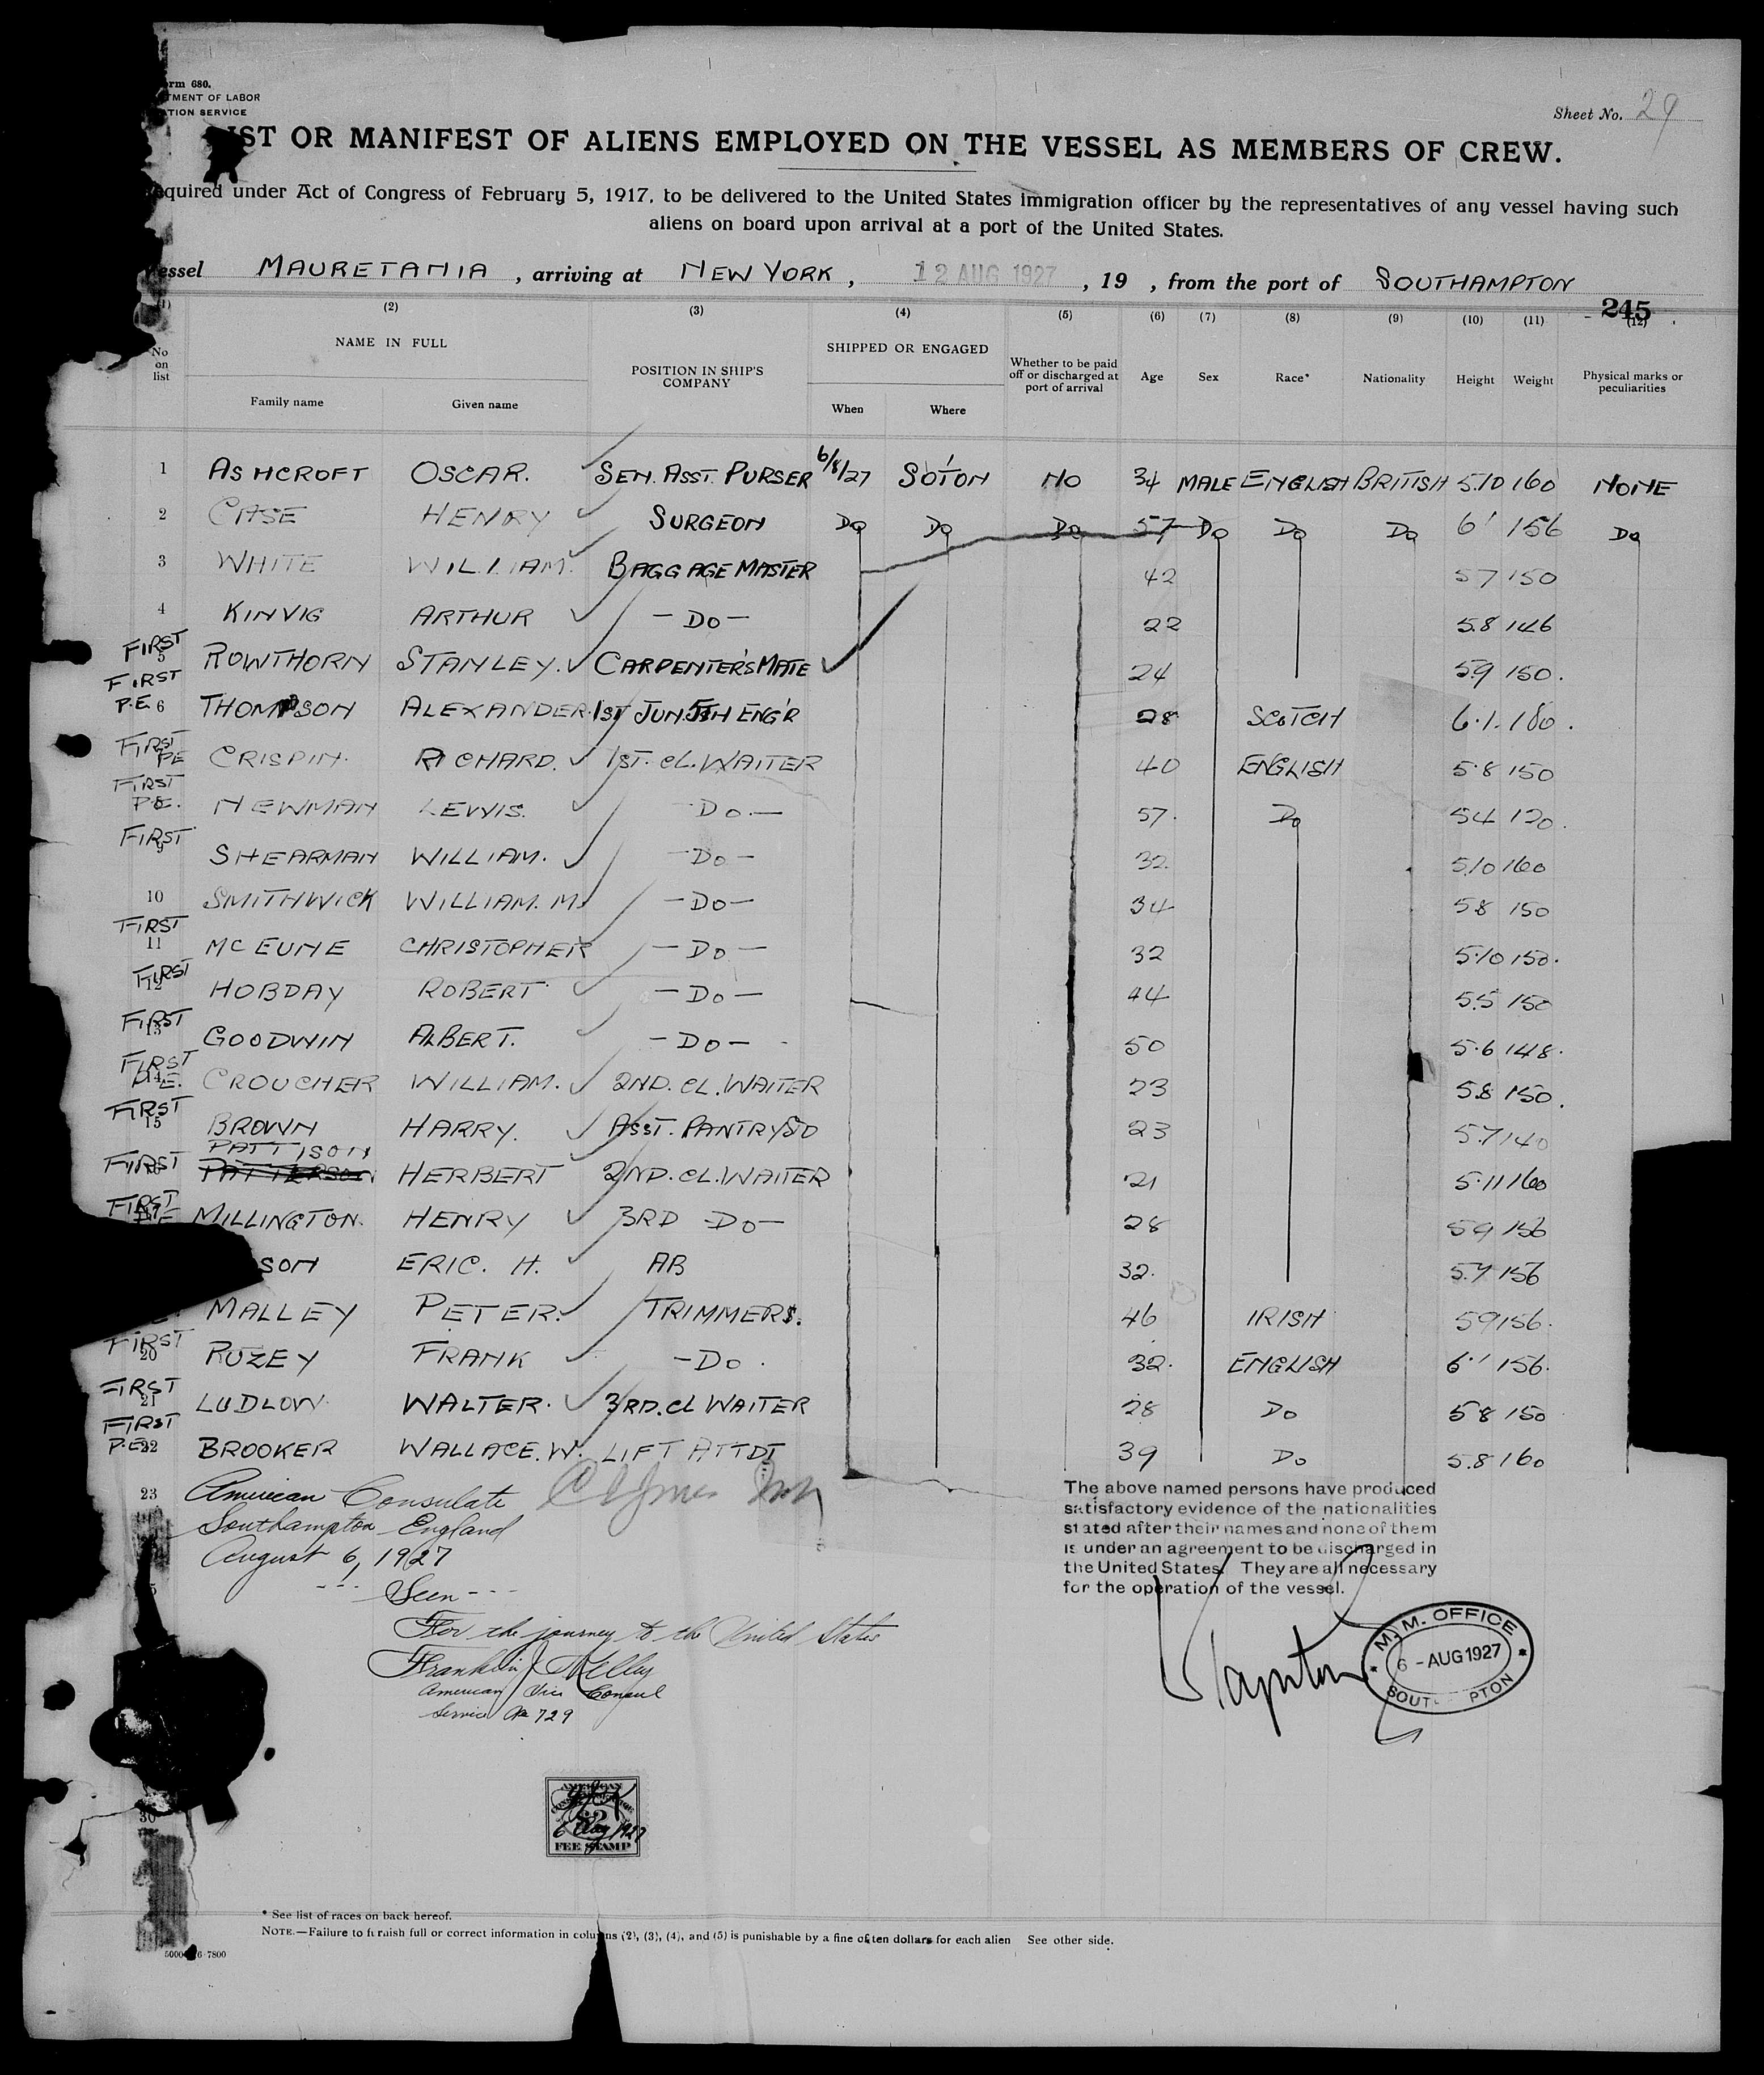 rm 680.
TMENT OF LABOR
TION SERVICE
Sheet No. 29
IST OR MANIFEST OF ALIENS EMPLOYED ON THE VESSEL AS MEMBERS OF CREW.
equired under Act of Congress of February 5, 1917, to be delivered to the United States immigration officer by the representatives of any vessel having such
aliens on board upon arrival at a port of the United States.
essel MAURETANIA , arriving at NEW YORK , 12 AUG 1927 , 19 , from the port of SOUTHAMPTON
245
(1) (2) (3) (4) (5) (6) (7) (8) (9) (10) (11) (12)
No on list NAME IN FULL Family name Given name POSITION IN SHIP'S COMPANY SHIPPED OR ENGAGED When Where Whether to be paid off or discharged at port of arrival Age Sex Race* Nationality Height Weight Physical marks or peculiarities
1 ASHCROFT OSCAR. SEN. ASST. PURSER 6/8/27 SO'TON NO 34 MALE ENGLISH BRITISH 5.10 160 NONE
2 CASE HENRY SURGEON Do Do Do 57 Do Do Do 6' 156 Do
3 WHITE WILLIAM. BAGGAGE MASTER 42 5 7 150
4 KINVIG ARTHUR - Do - 22 5.8 146
FIRST 5 ROWTHORN STANLEY. CARPENTER'S MATE 24 5.9 150.
FIRST P.E. 6 THOMPSON ALEXANDER. 1ST JUN. 5TH ENG'R 28 SCOTCH 6.1. 180.
FIRST PE CRISPIN. RICHARD. 1ST. CL. WAITER 40 ENGLISH 5.8 150
FIRST P.E. NEWMAN LEWIS. - Do. - 57. Do 5.4 120.
FIRST 9 SHEARMAN WILLIAM. - Do - 32. 5.10 160
10 SMITHWICK WILLIAM. M. - Do - 34 5 8 150
FIRST 11 MC EUNE CHRISTOPHER - Do - 32 5.10 150.
FIRST 12 HOBDAY ROBERT - Do - 44 5.5 150
FIRST 13 GOODWIN ALBERT. - Do - 50 5.6 148.
FIRST 14 P.E. CROUCHER WILLIAM. 2ND. CL. WAITER 23 5.8 150.
FIRST 15 BROWN HARRY. ASST. PANTRY 23 5.7 140
PATTISON
FIRST PATTERSON HERBERT 2ND. CL. WAITER 21 5.11 160
FIRST MILLINGTON. HENRY 3RD - Do - 28 5 9 156
SON ERIC. H. AB 32. 5.7 156
MALLEY PETER. TRIMMERS. 46 IRISH 5 9 156.
FIRST 20 RUZEY FRANK - Do. 32. ENGLISH 6.1 156.
FIRST 21 LUDLOW. WALTER. 3RD. CL WAITER 28 Do 5 8 150
FIRST P.E. 22 BROOKER WALLACE. W. LIFT ATTDT 39 Do 5.8 160
23 American Consulate
Southampton England
August 6, 1927
--- Seen ---
For the journey to the United States
Franklin J Kelley
American Vice Consul
Service No 729
The above named persons have produced
satisfactory evidence of the nationalities
stated after their names and none of them
is under an agreement to be discharged in
the United States. They are all necessary
for the operation of the vessel.
M. M. OFFICE
6 - AUG 1927
SOUT PTON
AMERICAN
6 Aug 1927
FEE STAMP
30
* See list of races on back hereof.
NOTE.—Failure to furnish full or correct information in columns (2), (3), (4), and (5) is punishable by a fine of ten dollars for each alien See other side.